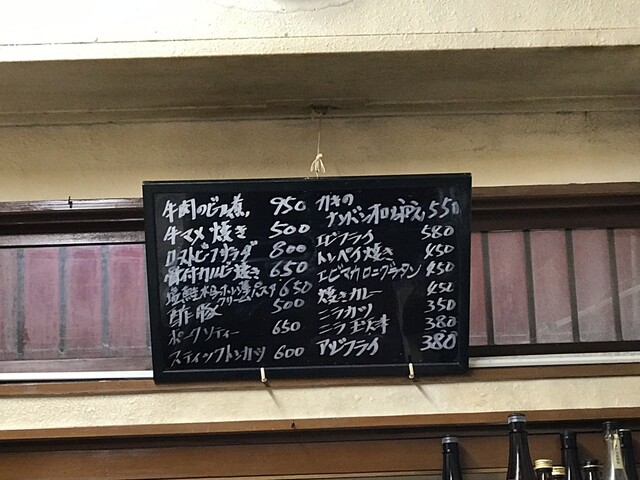 牛肉のビール煮, 950
牛マメ焼き 500
ローストビーフサラダ 800
骨付カルビ焼き 650
クリームパスタ 650
酢豚 500
ポークソティー 650
スティックトンカツ 600
カキの
ナンバンオロシ和え 550
エビフライ 580
トンペイ焼き 450
エビマカロニグラタン 450
焼きカレー 450
ニラカツ 350
ニラ玉天丼 380
アジフライ 380